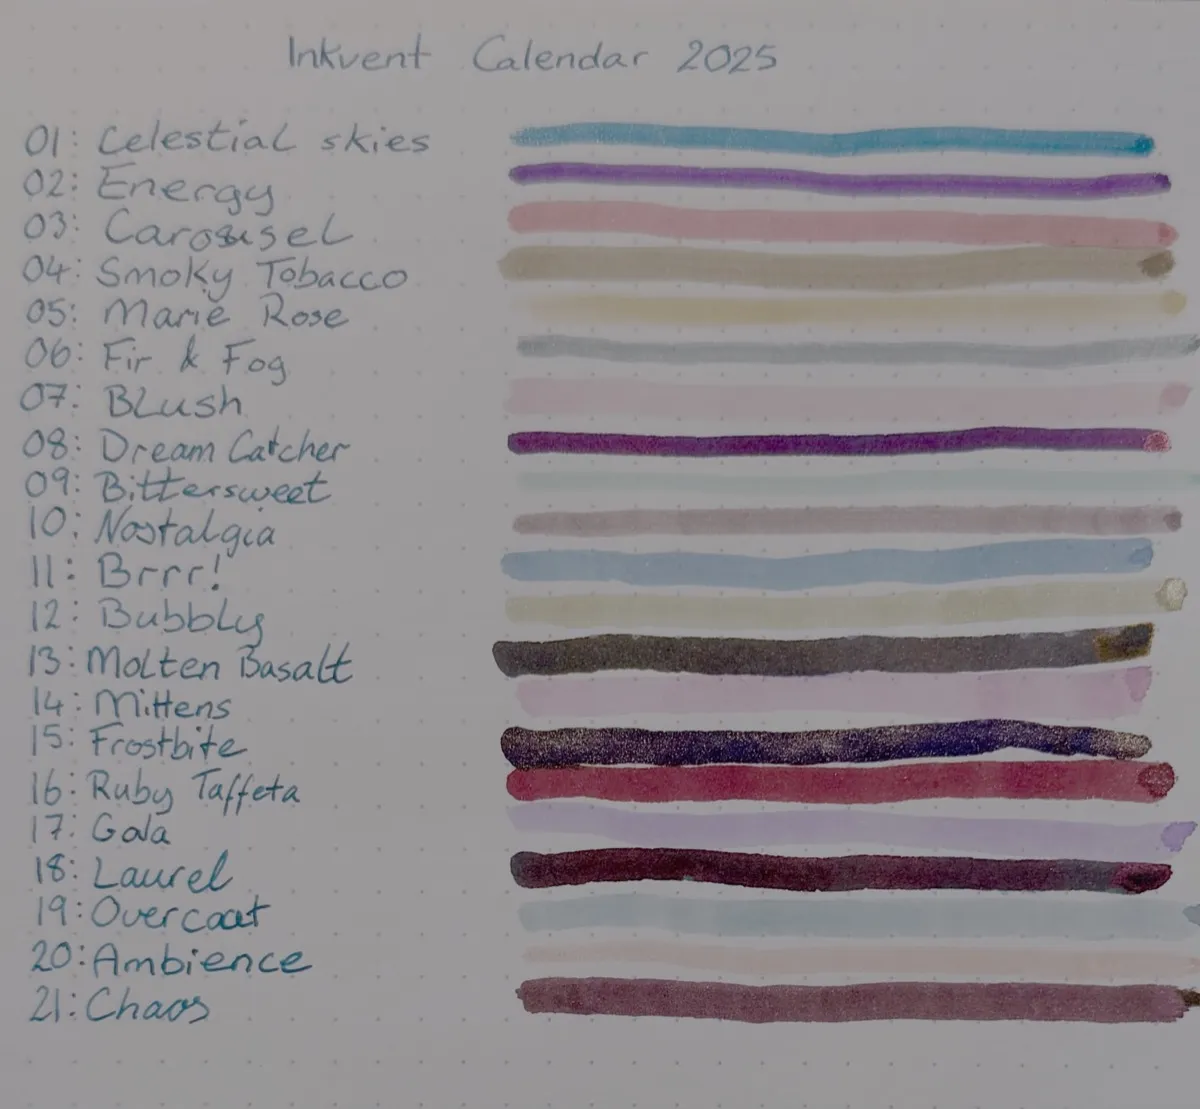 Inkvent Calendar 2025
01: Celestial skies
02: Energy
03: Carousel
04: Smoky Tobacco
05: Marie Rose
06: Fir & Fog
07: Blush
08: Dream Catcher
09: Bittersweet
10: Nostalgia
11: Brrr!
12: Bubbly
13: Molten Basalt
14: Mittens
15: Frostbite
16: Ruby Taffeta
17: Gala
18: Laurel
19: Overcoat
20: Ambience
21: Chaos